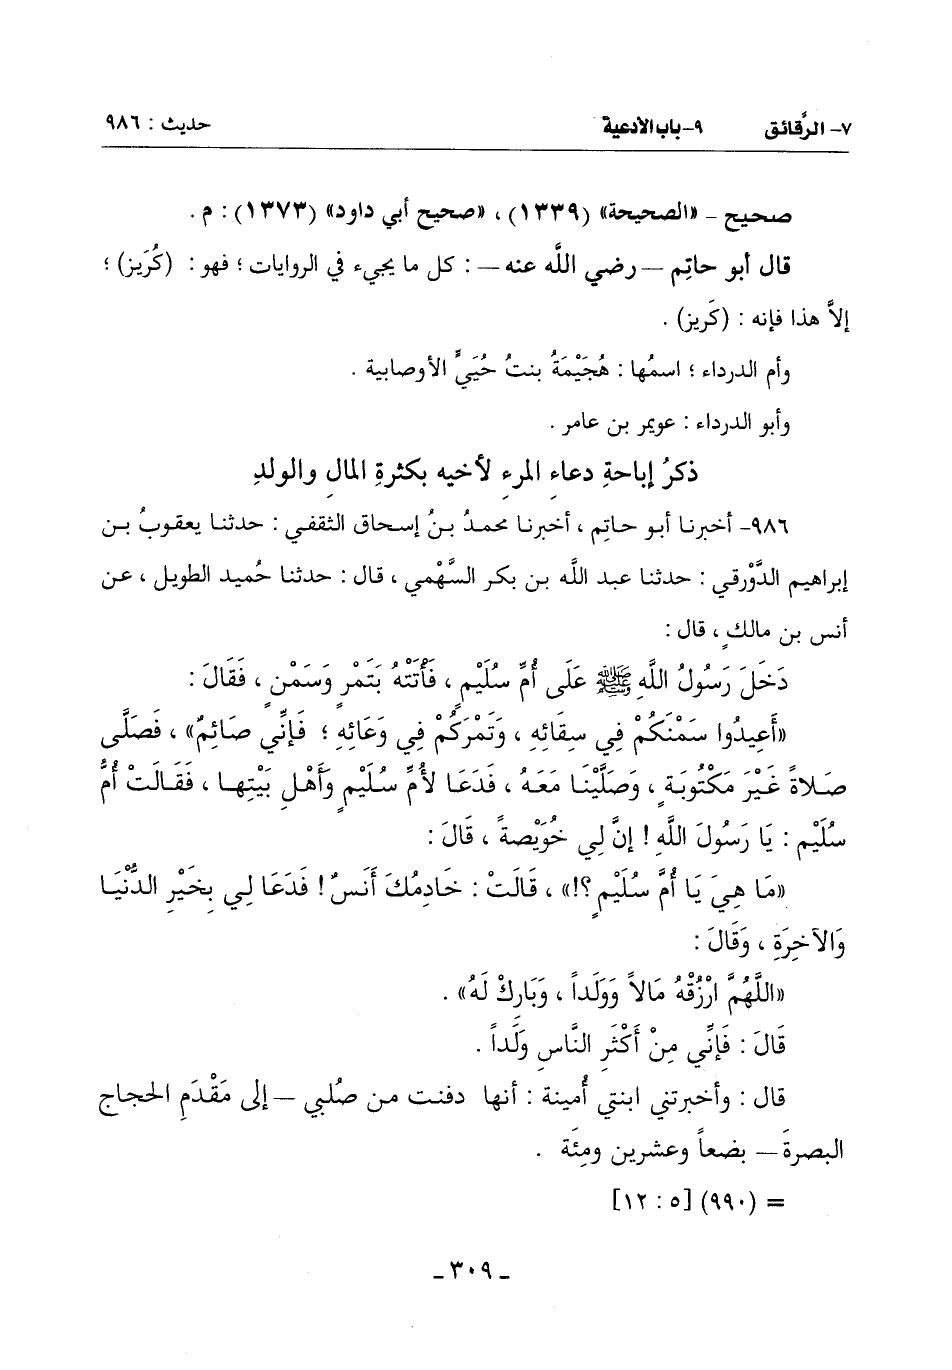 ٧- الرَّقائق ٩-باب الأدعية حديث : ٩٨٦
صحيح - «الصحيحة» (١٣٣٩) ، «صحيح أبي داود» (١٣٧٣) : م .
قال أبو حاتِم — رضي اللَّه عنه — : كل ما يجيء في الروايات ؛ فهو : (كُرَيز) ؛
إلاَّ هذا فإنه : (كَريز) .
وأم الدرداء ؛ اسمُها : هُجَيْمَةُ بنتُ حُيَيٍّ الأوصابية .
وأبو الدرداء : عويمر بن عامر .
ذكرُ إباحةِ دعاء المرءِ لأخيه بكثرةِ المالِ والولدِ
٩٨٦- أخبرنا أبو حاتِم ، أخبرنا محمدُ بنُ إسحاق الثقفي : حدثنا يعقوبُ بن
إبراهيم الدَّوْرقي : حدثنا عبد اللَّه بن بكر السَّهْمي ، قال : حدثنا حُميد الطويل ، عن
أنس بن مالكٍ ، قال :
دَخَلَ رَسُولُ اللَّهِ ﷺ عَلَى أُمِّ سُلَيْمٍ ، فَأَتَتْهُ بِتَمْرٍ وَسَمْنٍ ، فَقَالَ :
«أَعِيدُوا سَمْنَكُمْ فِي سِقَائِهِ ، وَتَمْرَكُمْ فِي وِعَائِهِ ؛ فَإِنِّي صَائِمٌ» ، فَصَلَّى
صَلاةً غَيْرَ مَكْتُوبَةٍ ، وَصَلَّيْنَا مَعَهُ ، فَدَعَا لأُمِّ سُلَيْمٍ وَأَهْلِ بَيْتِهَا ، فَقَالَتْ أُمُّ
سُلَيْمٍ : يَا رَسُولَ اللَّهِ ! إِنَّ لِي خُوَيْصةً ، قَالَ :
«مَا هِيَ يَا أُمَّ سُلَيْمٍ ؟!» ، قَالَتْ : خَادِمُكَ أَنَسٌ ! فَدَعَا لِي بِخَيْرِ الدُّنْيَا
وَالآخِرَةِ ، وَقَالَ :
«اللَّهُمَّ ارْزُقْهُ مَالاً وَوَلَداً ، وَبَارِكْ لَهُ» .
قَالَ : فَإِنِّي مِنْ أَكْثَرِ النَّاسِ وَلَداً .
قال : وأخبرتني ابنتي أُمينة : أنها دفنت من صُلبي — إلى مَقْدَمِ الحجاج
البصرةَ — بضعاً وعشرين ومِئَة .
= (٩٩٠) [٥ : ١٢]
- ٣٠٩ -